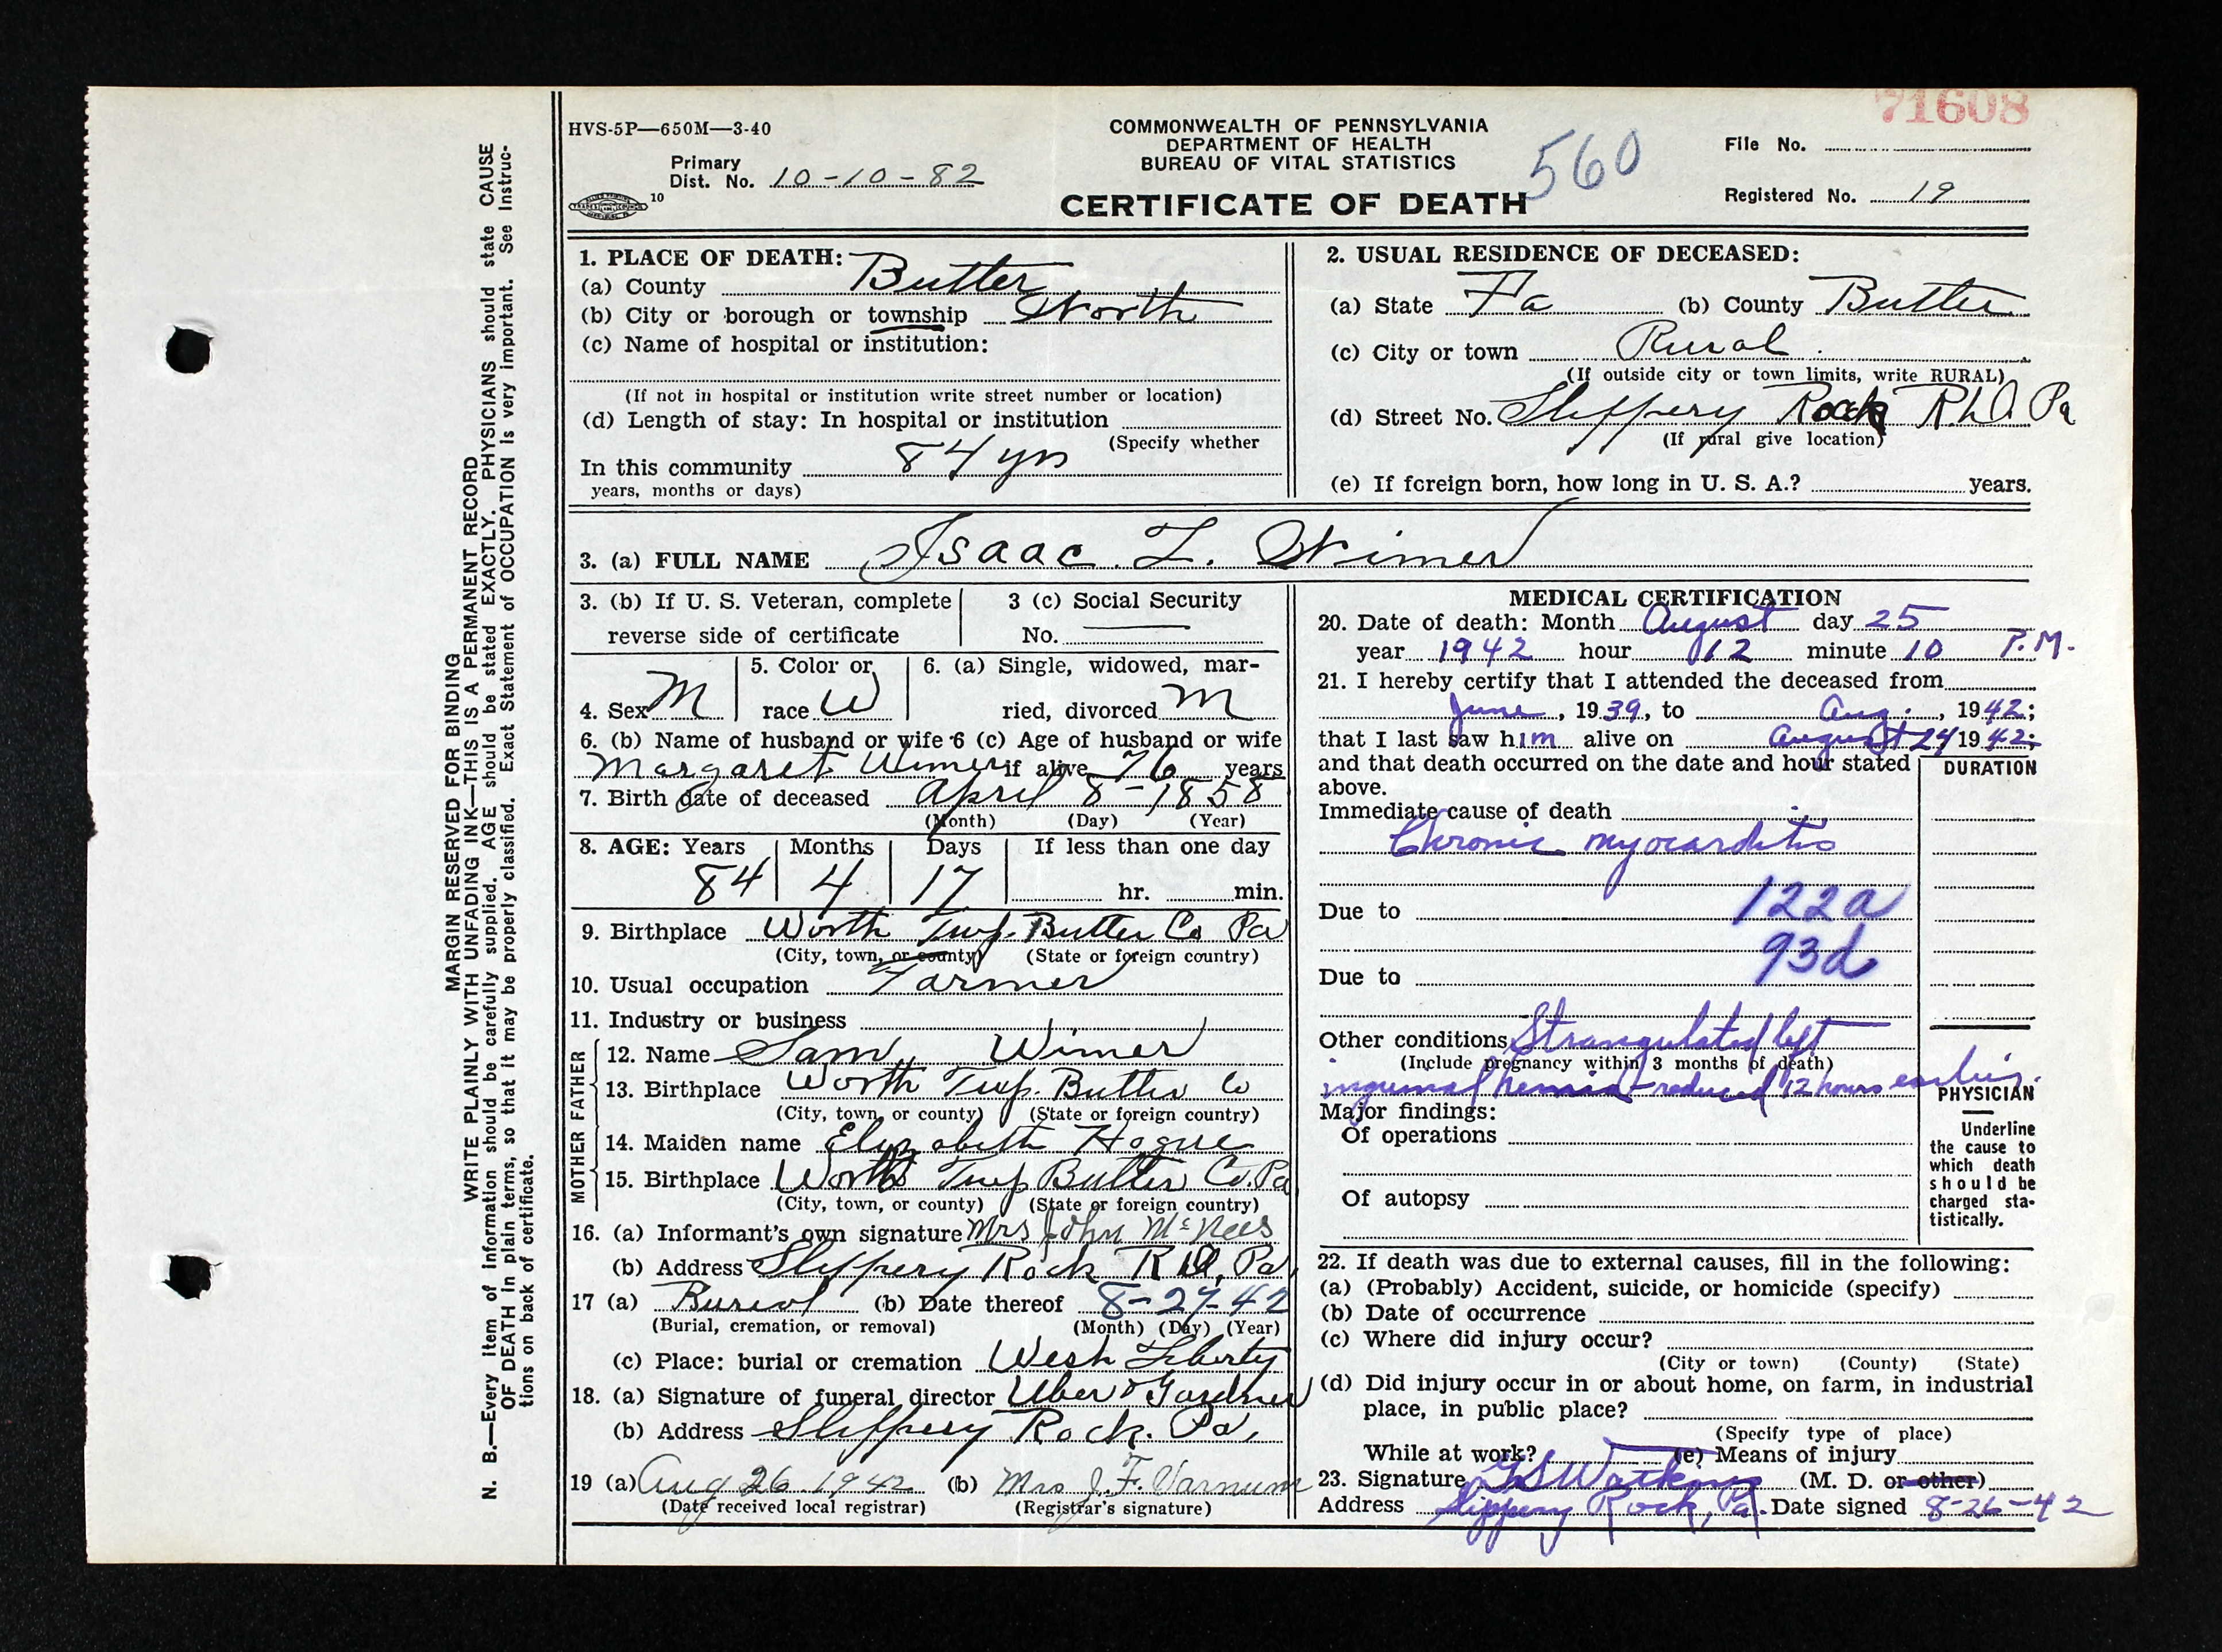 71608
HVS-5P—650M—3-40
COMMONWEALTH OF PENNSYLVANIA
DEPARTMENT OF HEALTH
BUREAU OF VITAL STATISTICS
CERTIFICATE OF DEATH
560
Primary
Dist. No. 10-10-82
10
File No.
Registered No. 19
1. PLACE OF DEATH:
(a) County Butler
(b) City or borough or township Worth
(c) Name of hospital or institution:
(If not in hospital or institution write street number or location)
(d) Length of stay: In hospital or institution
(Specify whether
In this community 84 yrs
years, months or days)
2. USUAL RESIDENCE OF DECEASED:
(a) State Pa (b) County Butler
(c) City or town Rural
(If outside city or town limits, write RURAL)
(d) Street No. Slippery Rock R.D. Pa
(If rural give location)
(e) If foreign born, how long in U. S. A.? years.
3. (a) FULL NAME Isaac Z. Wimer
3. (b) If U. S. Veteran, complete
reverse side of certificate
3 (c) Social Security
No.
4. Sex M
5. Color or
race W
6. (a) Single, widowed, mar-
ried, divorced M
6. (b) Name of husband or wife 6 (c) Age of husband or wife
Margaret Wimer if alive 76 years
7. Birth date of deceased April 8-1858
(Month) (Day) (Year)
8. AGE: Years Months Days If less than one day
84 4 17 hr. min.
9. Birthplace Worth Twp. Butler Co Pa
(City, town, or county) (State or foreign country)
10. Usual occupation Farmer
11. Industry or business
FATHER
12. Name Sam. Wimer
13. Birthplace Worth Twp. Butler Co
(City, town, or county) (State or foreign country)
MOTHER
14. Maiden name Elizabeth Hogue
15. Birthplace Worth Twp Butler Co. Pa
(City, town, or county) (State or foreign country)
16. (a) Informant's own signature Mrs John McNees
(b) Address Slippery Rock RD, Pa.
17 (a) Burial (b) Date thereof 8-27-42
(Burial, cremation, or removal) (Month) (Day) (Year)
(c) Place: burial or cremation West Liberty
18. (a) Signature of funeral director Uber & Gardner
(b) Address Slippery Rock. Pa.
19 (a) Aug 26 1942 (b) Mrs J. F. Varnum
(Date received local registrar) (Registrar's signature)
MEDICAL CERTIFICATION
20. Date of death: Month August day 25
year 1942 hour 12 minute 10 P.M.
21. I hereby certify that I attended the deceased from
June, 1939, to Aug., 1942;
that I last saw him alive on August 24 1942;
and that death occurred on the date and hour stated
above.
DURATION
Immediate cause of death
Chronic myocarditis
Due to 122a
93d
Due to
Other conditions Strangulated left
(Include pregnancy within 3 months of death)
inguinal hernia-reduced 12 hours earlier.
Major findings:
Of operations
Of autopsy
PHYSICIAN
Underline
the cause to
which death
should be
charged sta-
tistically.
22. If death was due to external causes, fill in the following:
(a) (Probably) Accident, suicide, or homicide (specify)
(b) Date of occurrence
(c) Where did injury occur?
(City or town) (County) (State)
(d) Did injury occur in or about home, on farm, in industrial
place, in public place?
(Specify type of place)
While at work? (e) Means of injury
23. Signature Watkins (M. D. or other)
Address Slippery Rock, Pa. Date signed 8-26-42
MARGIN RESERVED FOR BINDING
WRITE PLAINLY WITH UNFADING INK—THIS IS A PERMANENT RECORD
N. B.—Every item of information should be carefully supplied. AGE should be stated EXACTLY. PHYSICIANS should state CAUSE
OF DEATH in plain terms, so that it may be properly classified. Exact Statement of OCCUPATION is very important. See Instruc-
tions on back of certificate.